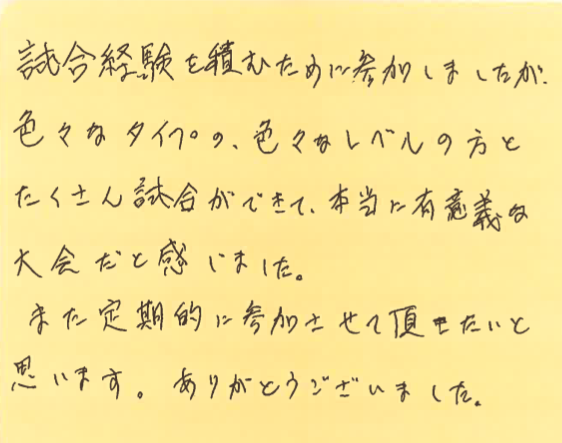 試合経験を積むために参加しましたが、
色々なタイプの、色々なレベルの方と
たくさん試合ができて、本当に有意義な
大会だと感じました。
また定期的に参加させて頂きたいと
思います。ありがとうございました。